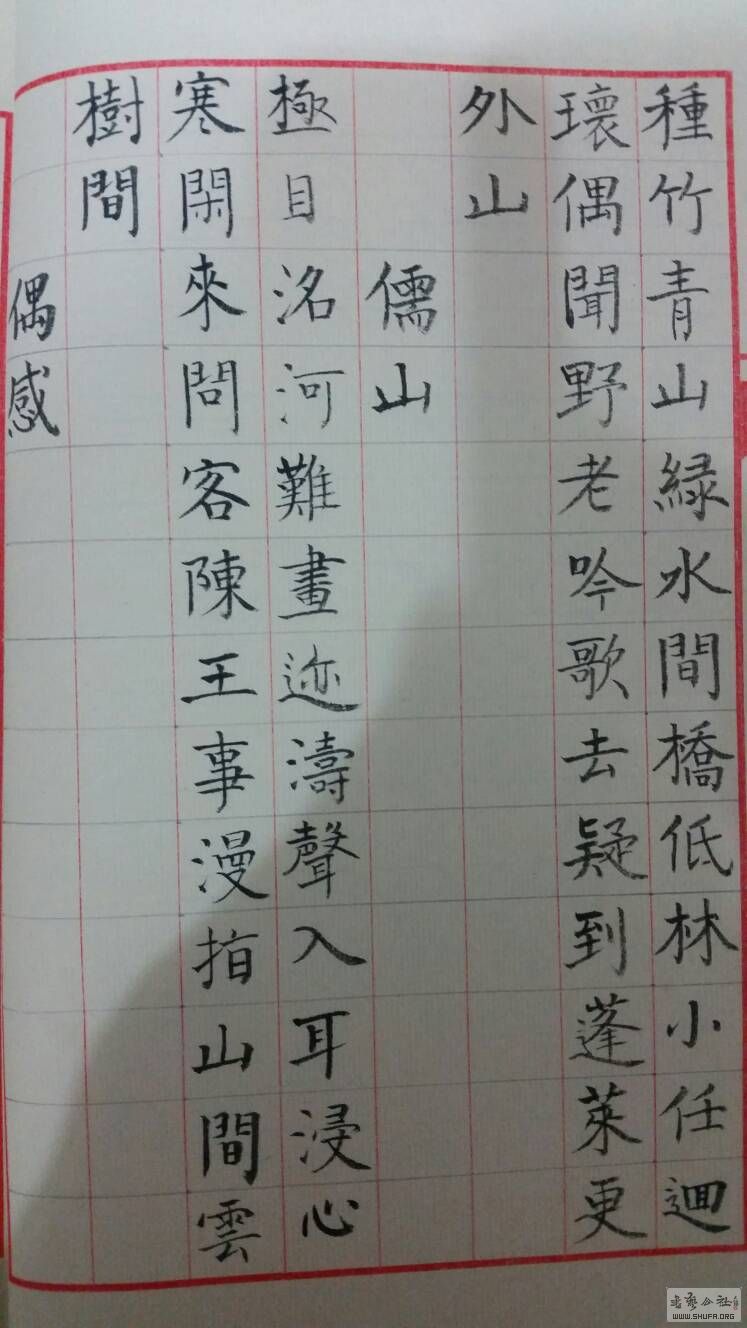 種竹青山緑水間橋低林小任迴
瓌偶聞野老吟歌去疑到蓬萊更
外山
儒山
極目洺河難畫迹濤聲入耳浸心
寒閑來問客陳王事漫指山間雲
樹間
偶感
WWW.SHUFA.ORG